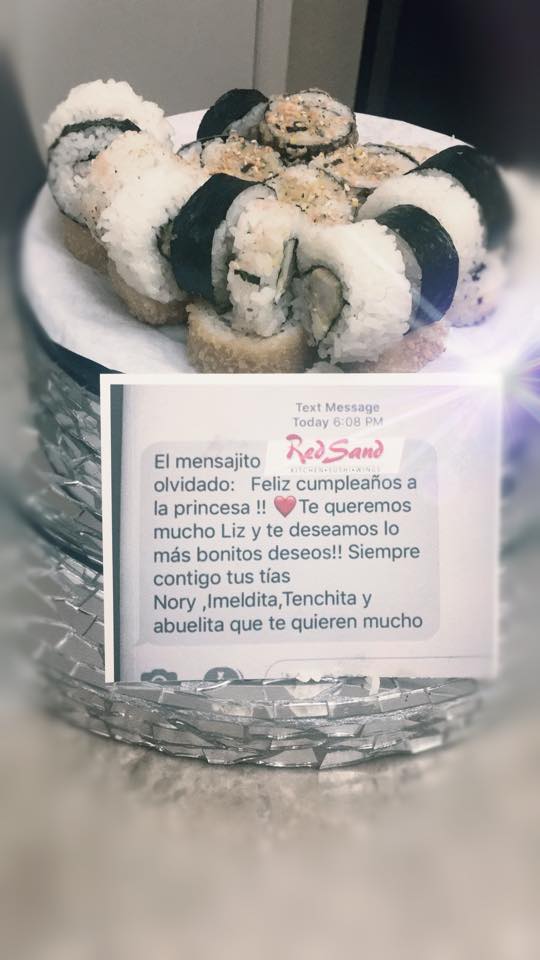 Text Message
Today 6:08 PM
El mensajito RedSand
KITCHEN•SUSHI•WINGS
olvidado: Feliz cumpleaños a
la princesa !! ❤️Te queremos
mucho Liz y te deseamos lo
más bonitos deseos!! Siempre
contigo tus tías
Nory ,Imeldita,Tenchita y
abuelita que te quieren mucho